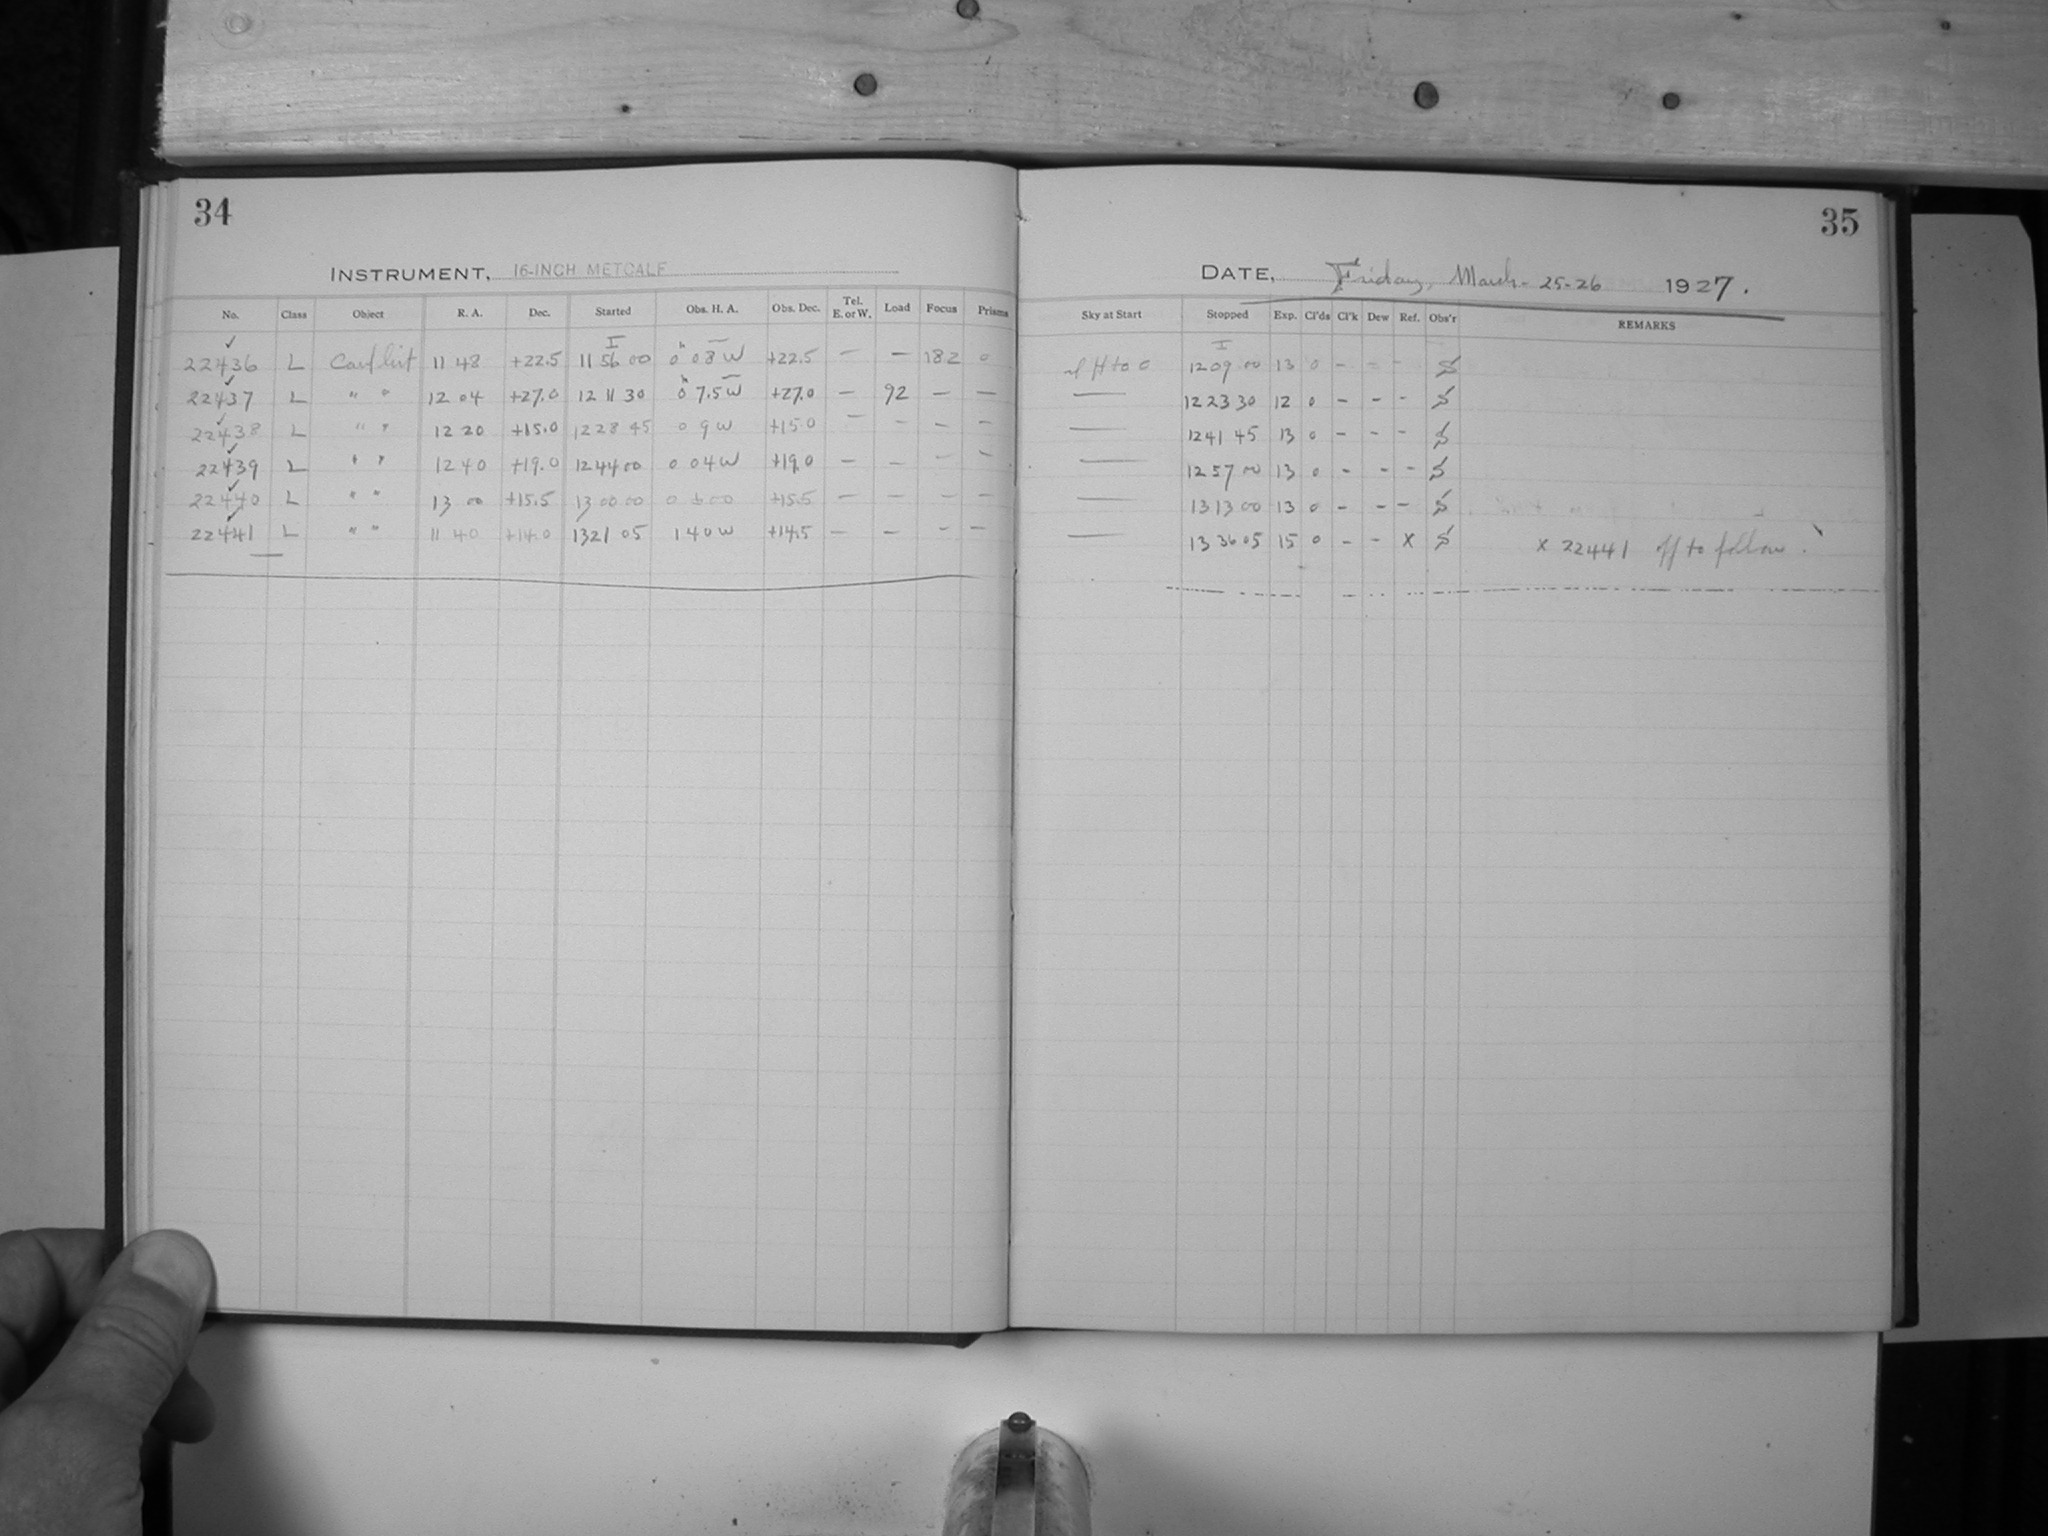 34
INSTRUMENT, 16-INCH METCALF
No. Class Object R. A. Dec. Started Obs. H. A. Obs. Dec. Tel. E. or W. Load Focus Prisms
I
22436 L Card list 11 48 +22.5 11 56 00 0 08 W +22.5 — — 182 0
22437 L " " 12 04 +27.0 12 11 30 0 7.5 W +27.0 — 92 — —
22438 L " " 12 20 +15.0 12 28 45 0 9 W +15.0 — — — —
22439 L " " 12 40 +19.0 12 44 00 0 04 W +19.0 — — — —
22440 L " " 13 00 +15.5 13 00 00 0 00 +15.5 — — — —
22441 L " " 11 40 +14.0 13 21 05 1 40 W +14.5 — — — —
35
DATE, Friday, March 25-26 1927.
Sky at Start Stopped Exp. Cl'ds Cl'k Dew Ref. Obs'r REMARKS
I
12 09 00 13 0 - - - S
— 12 23 30 12 0 - - - S
— 12 41 45 13 0 - - - S
— 12 57 00 13 0 - - - S
— 13 13 00 13 0 - - - S
— 13 36 05 15 0 - - X S X 22441 off to follow.